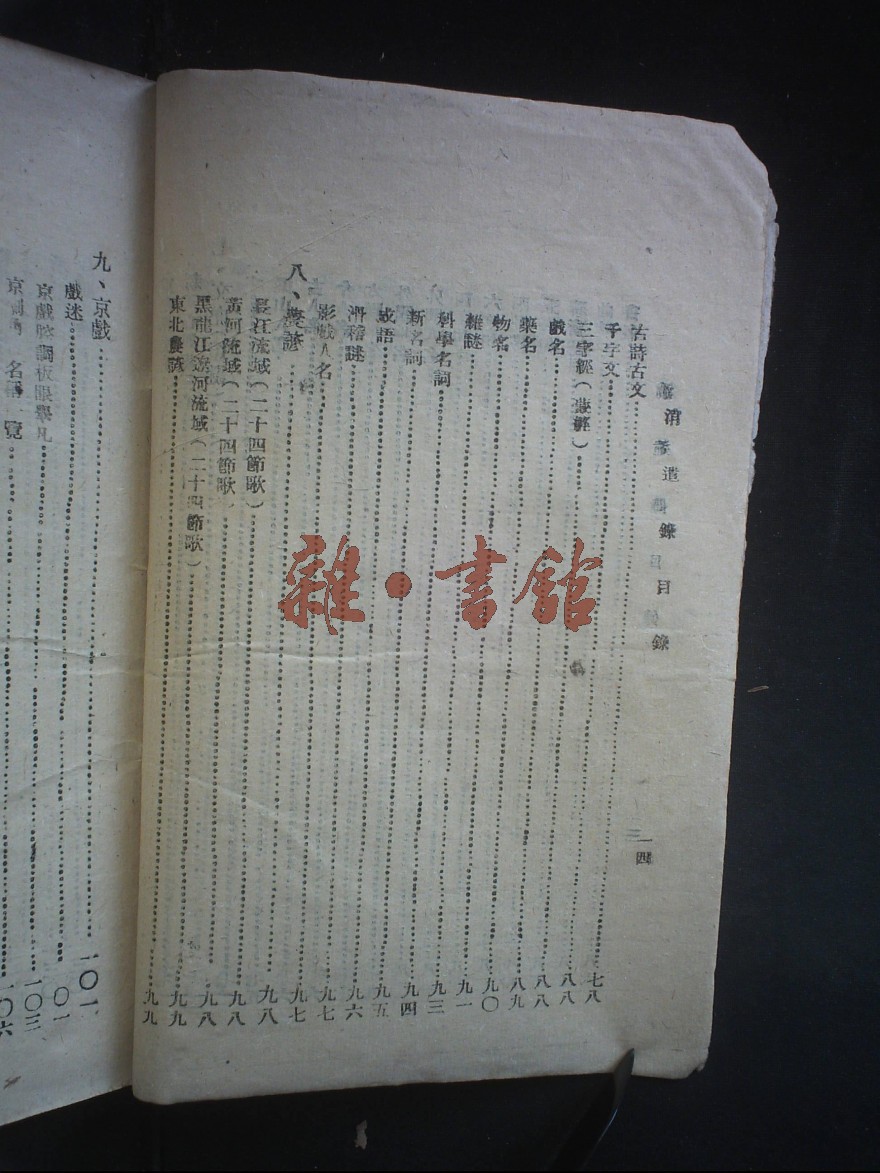 消遣錄目錄
四
古詩古文……七八
千字文……八八
三字經……八八
戲名……八九
藥名……九〇
物名……九一
雜謎……九三
科學名詞……九四
新名詞……九五
成語……九六
滑稽謎……九七
影戲人名……九七
八、農諺……九八
長江流域(二十四節歌)……九八
黃河流域(二十四節歌)……九八
黑龍江遼河流域(二十四節歌)……九九
東北農諺……九九
九、京戲……一〇一
戲迷……一〇一
京戲腔調板眼舉凡……一〇三
京劇 名 一覽……一〇六
雜·書館